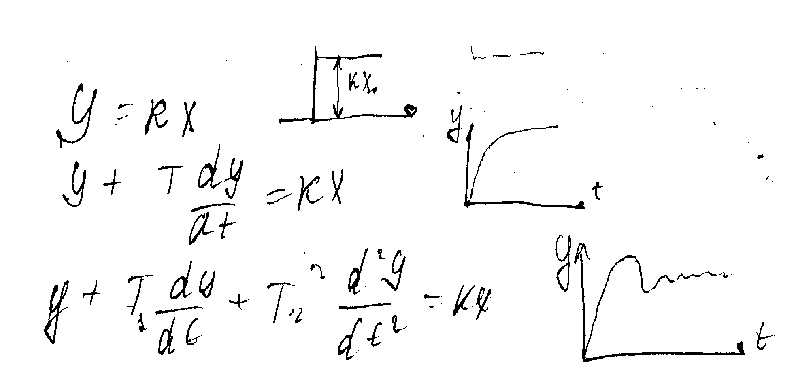 y = kx
kx₀
y + T dy/dt = kx
y
t
y + T₁ dy/dt + T₂² d²y/dt² = kx
y
t